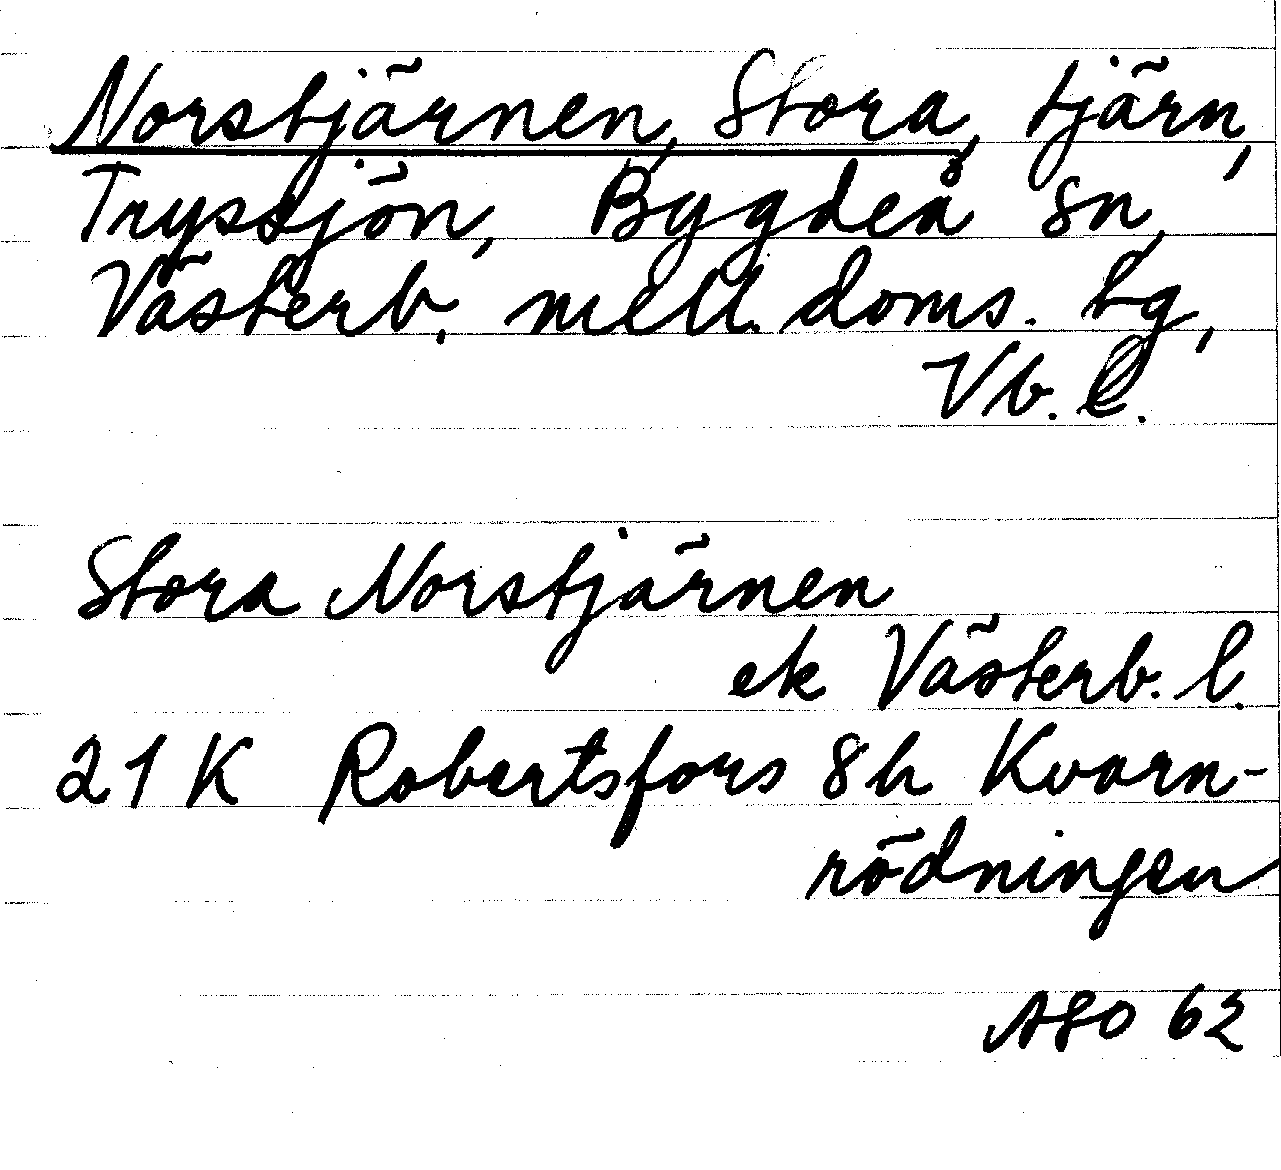 Norstjärnen, Stora, tjärn,
Tryssjön, Bygdeå sn,
Västerb. mell. doms. tg,
Vb. l.
Stora Norstjärnen
ek Västerb. l.
21 K Robertsfors 8h Kvarn-
rödningen
ASO 62